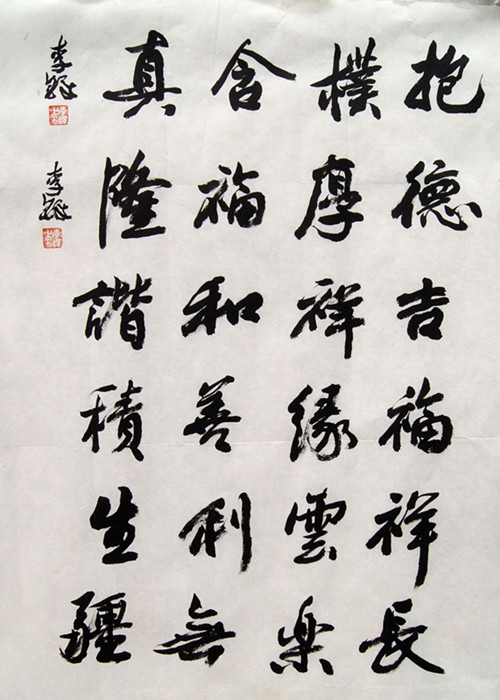 抱樸含真
德厚福隆
吉祥和諧
福緣善積
祥雲利生
長樂無疆
李
李